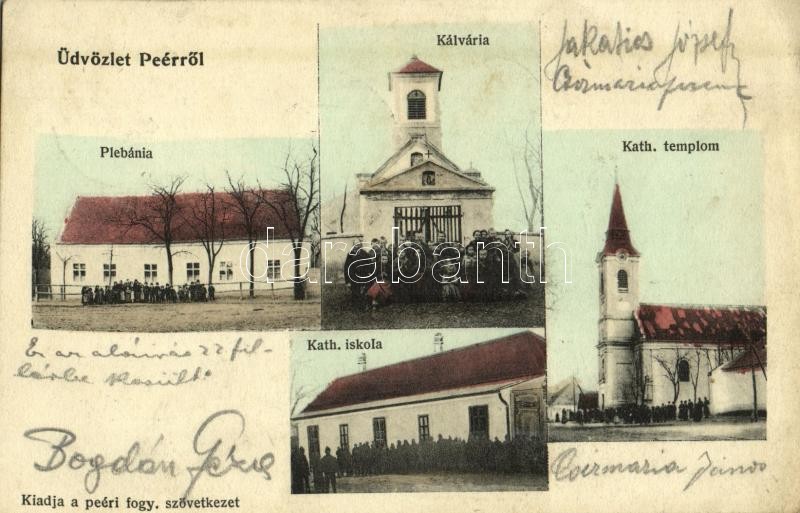 Üdvözlet Peérről
Kálvária
Jakatics József
Plebánia
Kath. templom
darabanth.com
Ez az aláírás 22 fil-
lérbe került.
Kath. iskola
Bogdán Géza
Csizmaria János
Kiadja a peéri fogy. szövetkezet